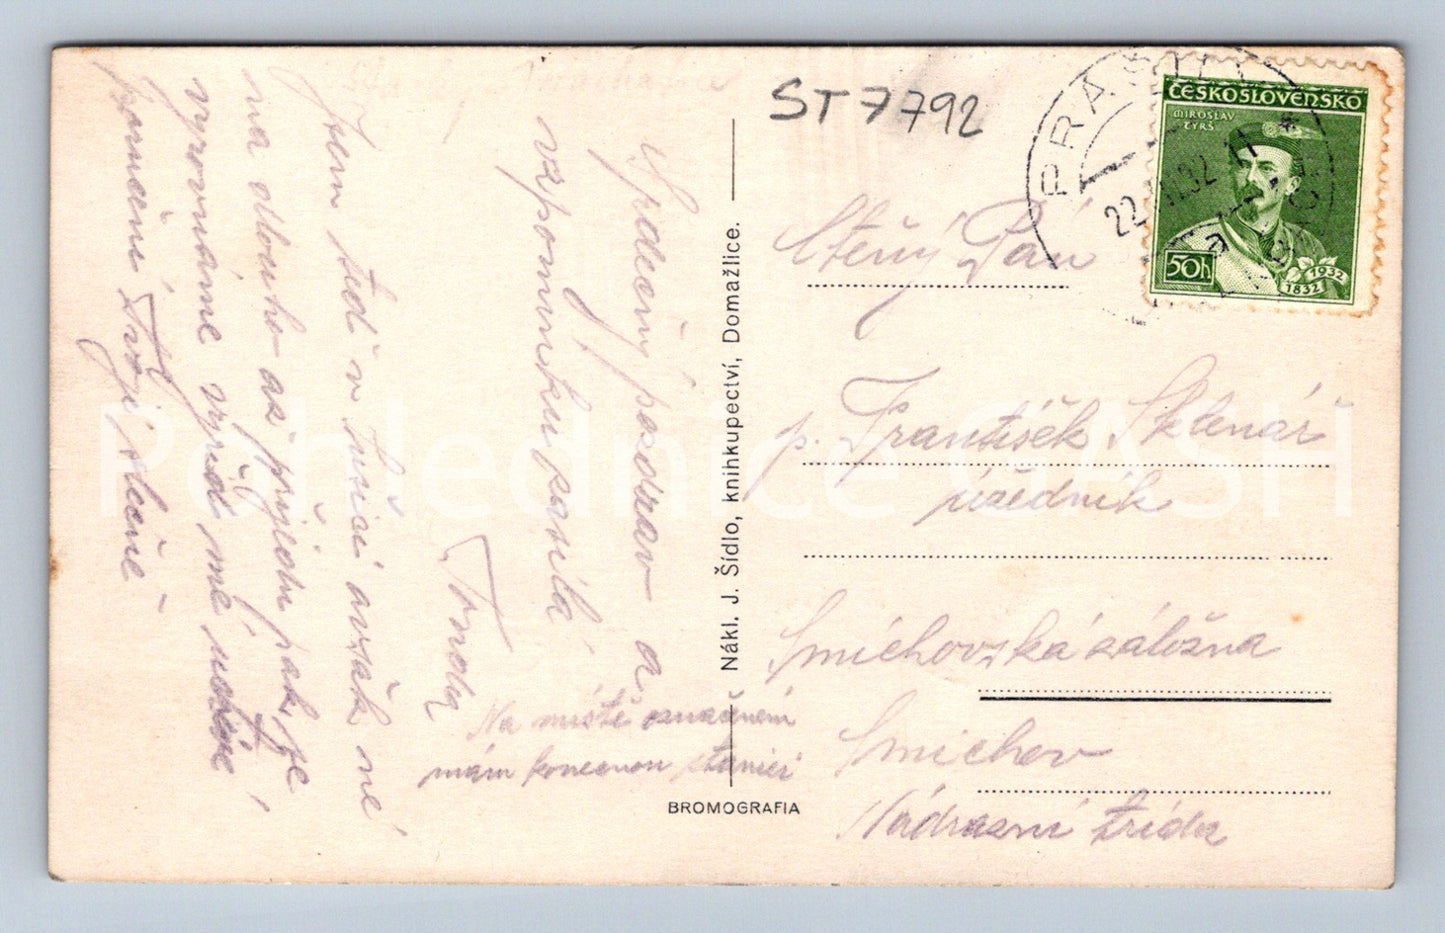 ST 7792
PRAŠILY
22. 32 11
a
ČESKOSLOVENSKO
MIROSLAV
TYRŠ
50h
1932
1832
Ctěný Pán
p. František Sklenář
úředník
Smíchovská záložna
Smíchov
Nádrazní třída
Nákl. J. Šídlo, knihkupectví, Domažlice.
BROMOGRAFIA
Srdečný pozdrav a
vzpomínku zasílá
Tonda
Jsem teď v Sušici avšak ne
na dlouho až přijedu pak se
vyrovnáme vyřiď mé
Tvoji slečně
Na místě označeném
mám konečnou stanici
Pohlednice SASH